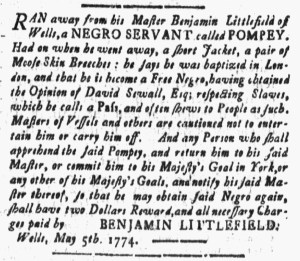 RAN away from his Master Benjamin Littlefield of
Wells, a NEGRO SERVANT called POMPEY.
Had on when he went away, a short Jacket, a pair of
Moose Skin Breeches: he says he was baptized in Lon-
don, and that he is become a Free Negro, having obtained
the Opinion of David Sewall, Esq; respecting Slaves,
which he calls a Pass, and often shews to People as such.
Masters of Vessels and others are cautioned not to enter-
tain or carry him off. And any Person who shall
apprehend the said Pompey, and return him to his said
Master, or commit him to his Majesty's Goal in York, or
any other of his Majesty's Goals, and notify his said Ma-
ster thereof, so that he may obtain said Negro again,
shall have two Dollars Reward, and all necessary Char-
ges paid by BENJAMIN LITTLEFIELD.
Wells, May 5th. 1774.